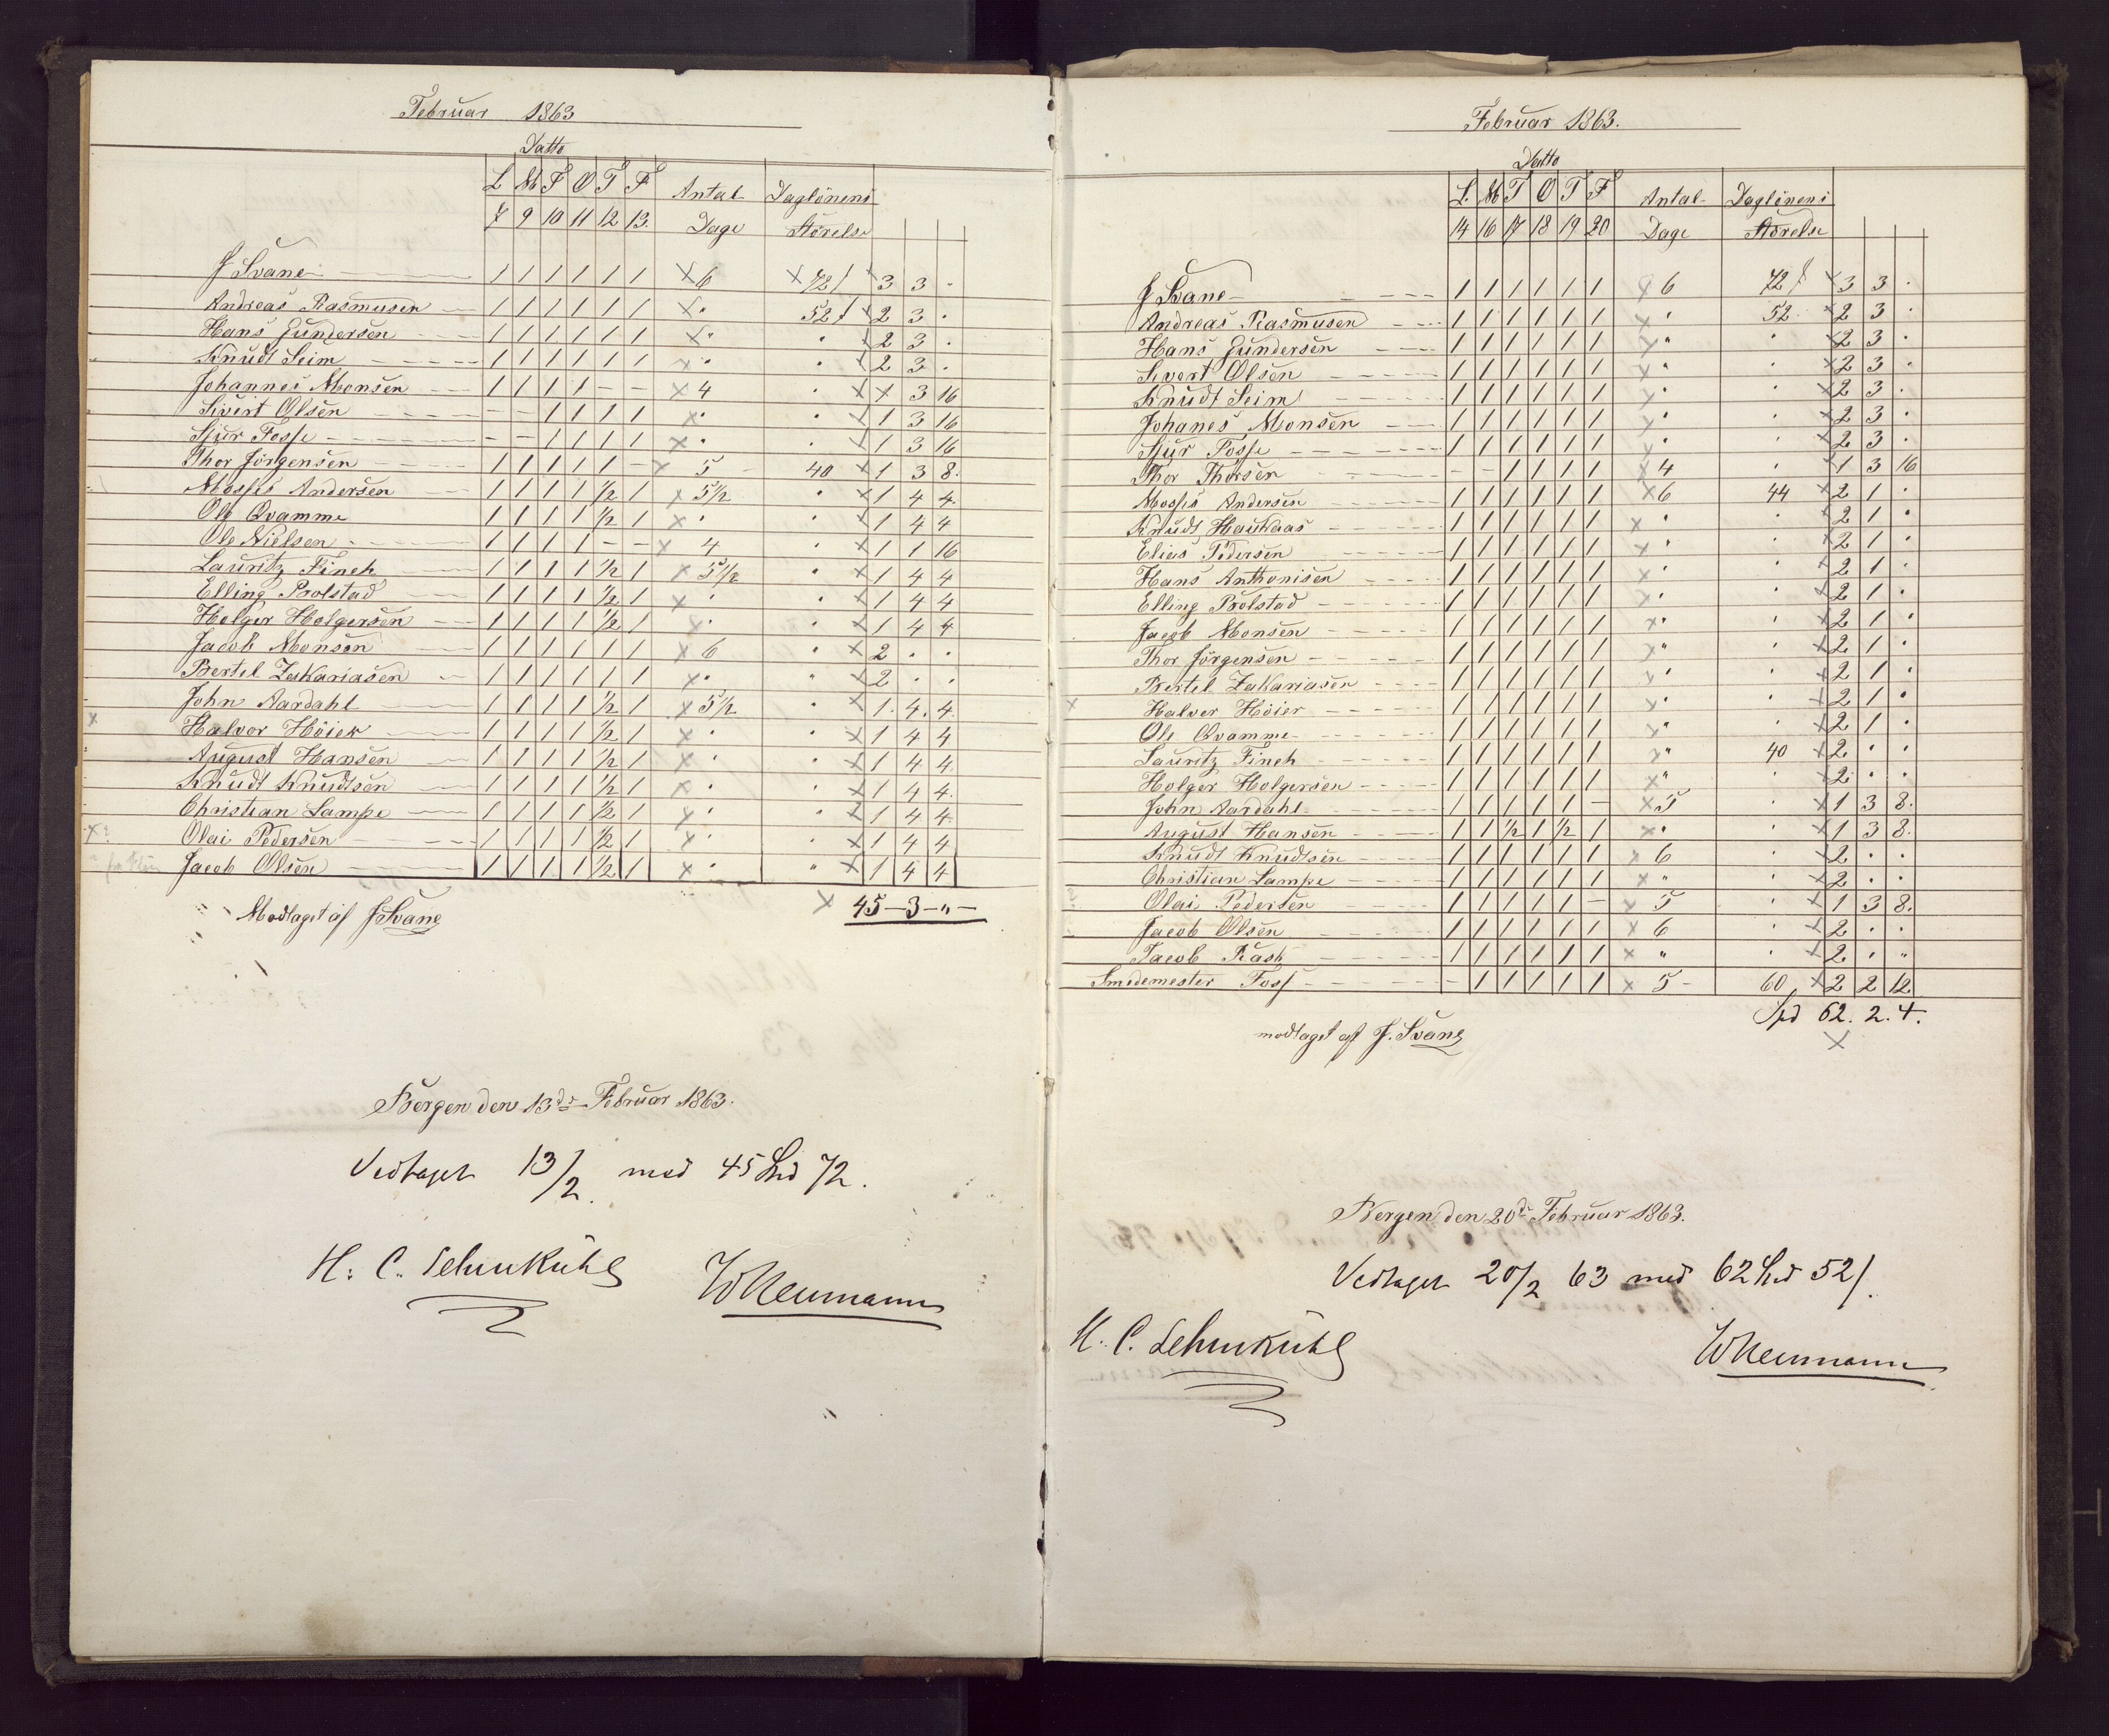 Februar 1863
Datto
L M T O T F Antal Daglönens
7 9 10 11 12 13. Dage Störelse
J Svane 1 1 1 1 1 1 × 6 × 72 ſ × 3 3 .
Andreas Rasmusen 1 1 1 1 1 1 × " 52 ſ × 2 3 .
Hans Gundersen 1 1 1 1 1 1 × " " × 2 3 .
Knudt Seim 1 1 1 1 1 1 × " " × 2 3 .
Johannes Monsen 1 1 1 1 – – × 4 " × 1 3 16
Sivert Olsen – – 1 1 1 1 × " " × 1 3 16
Sjur Fosse – – 1 1 1 1 × " " × 1 3 16
Thor Jörgensen 1 1 1 1 1 – × 5 40 × 1 3 8.
Mosses Andersen 1 1 1 1 ½ 1 × 5½ " × 1 4 4.
Ole Qvamme 1 1 1 1 ½ 1 × " " × 1 4 4
Ole Nielsen 1 1 1 1 – – × 4 " × 1 1 16
Lauritz Finch 1 1 1 1 ½ 1 × 5½ " × 1 4 4
Elling Rolstad 1 1 1 1 ½ 1 × " " × 1 4 4
Holger Holgersen 1 1 1 1 ½ 1 × " " × 1 4 4
Jacob Monsen 1 1 1 1 1 1 × 6 " × 2 . .
Bertel Zakariasen 1 1 1 1 1 1 × " " × 2 . .
John Aardahl 1 1 1 1 ½ 1 × 5½ " × 1. 4. 4.
× Halvor Höier 1 1 1 1 ½ 1 × " " × 1 4 4
August Hansen 1 1 1 1 ½ 1 × " " × 1 4 4.
Knudt Knudtsen 1 1 1 1 ½ 1 × " " × 1 4 4.
Christian Lampe 1 1 1 1 ½ 1 × " " × 1 4 4.
× Olai Pedersen 1 1 1 1 ½ 1 × " " × 1 4 4
Jacob Olsen 1 1 1 1 ½ 1 × " " × 1 4 4
× 45 – 3 – " –
Modtaget af J Svane
Bergen den 13de Februar 1863.
Vedtaget 13/2. med 45 Spd 72.
H. C. Lehmkuhl WNeumann
Februar 1863.
Datto
L. M T O T F Antal Daglönens
14 16 17 18 19 20 Dage Störelse
J Svane 1 1 1 1 1 1 × 6 72 ſ × 3 3 .
Andreas Rasmusen 1 1 1 1 1 1 × " 52 × 2 3 .
Hans Gundersen 1 1 1 1 1 1 × " " × 2 3 .
Sivert Olsen 1 1 1 1 1 1 × " " × 2 3 .
Knudt Seim 1 1 1 1 1 1 × " " × 2 3 .
Johanes Monsen 1 1 1 1 1 1 × " " × 2 3 .
Sjur Fosse 1 1 1 1 1 1 × " " × 2 3 .
Thor Thorsen – – 1 1 1 1 × 4 " × 1 3 16
Mosses Andersen 1 1 1 1 1 1 × 6 44 × 2 1 .
Knudt Haukaas 1 1 1 1 1 1 × " " × 2 1 .
Elias Pedersen 1 1 1 1 1 1 × " " × 2 1 .
Hans Anthonisen 1 1 1 1 1 1 × " " × 2 1 .
Elling Rolstad 1 1 1 1 1 1 × " " × 2 1 .
Jacob Monsen 1 1 1 1 1 1 × " " × 2 1 .
Thor Jörgensen 1 1 1 1 1 1 × " " × 2 1 .
Bertel Zakariasen 1 1 1 1 1 1 × " " × 2 1 .
× Halvor Höier 1 1 1 1 1 1 × " " × 2 1 .
Ole Qvamme 1 1 1 1 1 1 × " " × 2 1 .
Lauritz Finch 1 1 1 1 1 1 × " 40 × 2 . .
Holger Holgersen 1 1 1 1 1 1 × " " × 2 . .
John Aardahl 1 1 1 1 1 – × 5 " × 1 3 8.
August Hansen 1 1 ½ 1 ½ 1 × " " × 1 3 8.
Knudt Knudtsen 1 1 1 1 1 1 × 6 " × 2 . .
Christian Lampe 1 1 1 1 1 1 × " " × 2 . .
Olai Pedersen 1 1 1 1 1 – × 5 " × 1 3 8.
Jacob Olsen 1 1 1 1 1 1 × 6 " × 2 . .
Jacob Rask 1 1 1 1 1 1 × " " × 2 . "
Smedemester Foss – 1 1 1 1 1 × 5 60 × 2 2 12
Spd 62. 2. 4.
×
modtaget af J. Svane
Bergen den 20de Februar 1863.
Vedtaget 20/2 63 med 62 Spd 52 ſ.
H. C. Lehmkuhl WNeumann